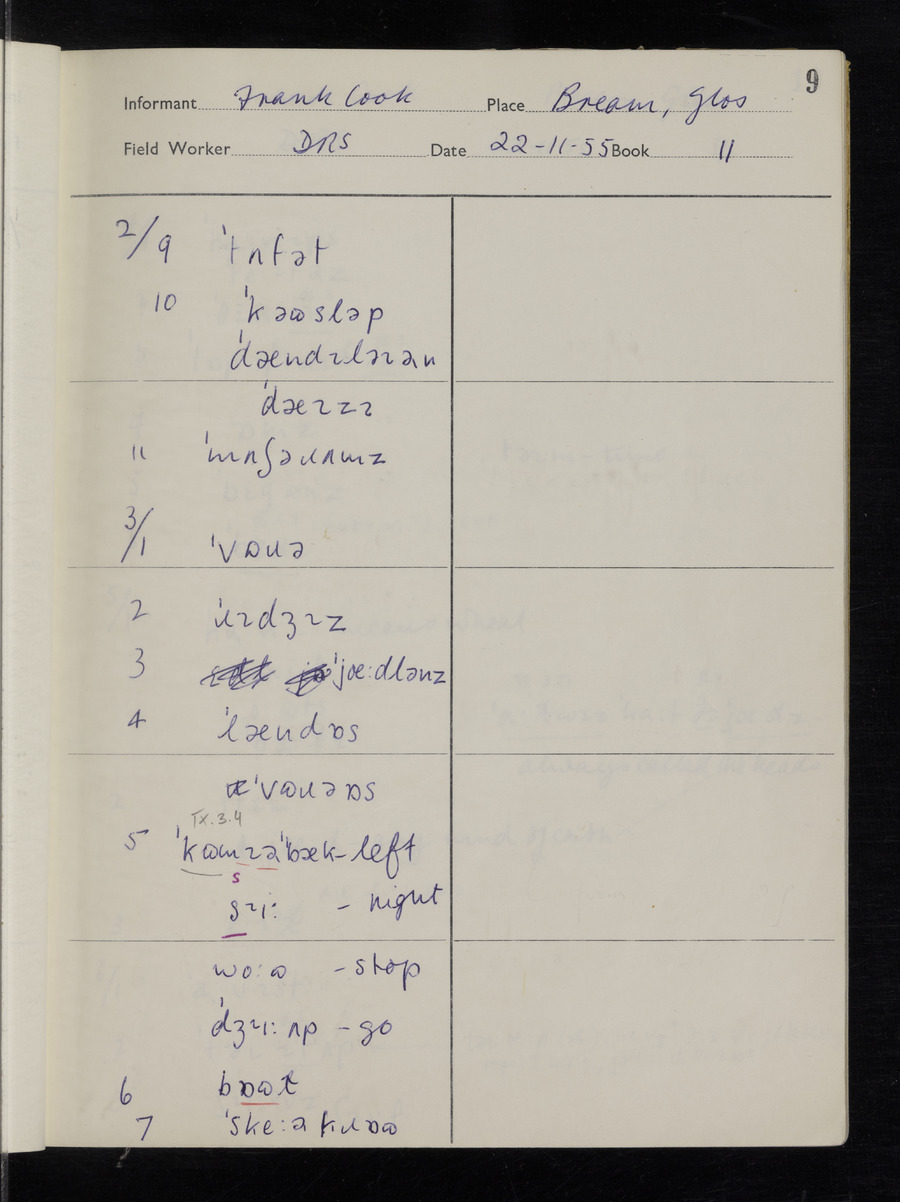 9
Informant Frank Cook Place Bream, Glos
Field Worker DRS Date 22-11-55 Book 11
2/9 ˈtʌfət
10 ˈkəɷsləp
ˈdændɪləɪən
ˈdæɪzɪ
11 ˈmʌʃəɹʌmz
3/1 ˈvɒɹə
2 ˈɹɪdʒɪz
3 ˈjœ:dlənz
4 ˈlændɒs
ˈvɒɹəɒs
TX.3.4
5 ˈkɷmɪəˈbæk - left
s
sɪi: - right
wo:ɷ - stop
ˈdʒɪi: ʌp - go
6 bɒɷt
7 ˈske:əkɹɒɷ